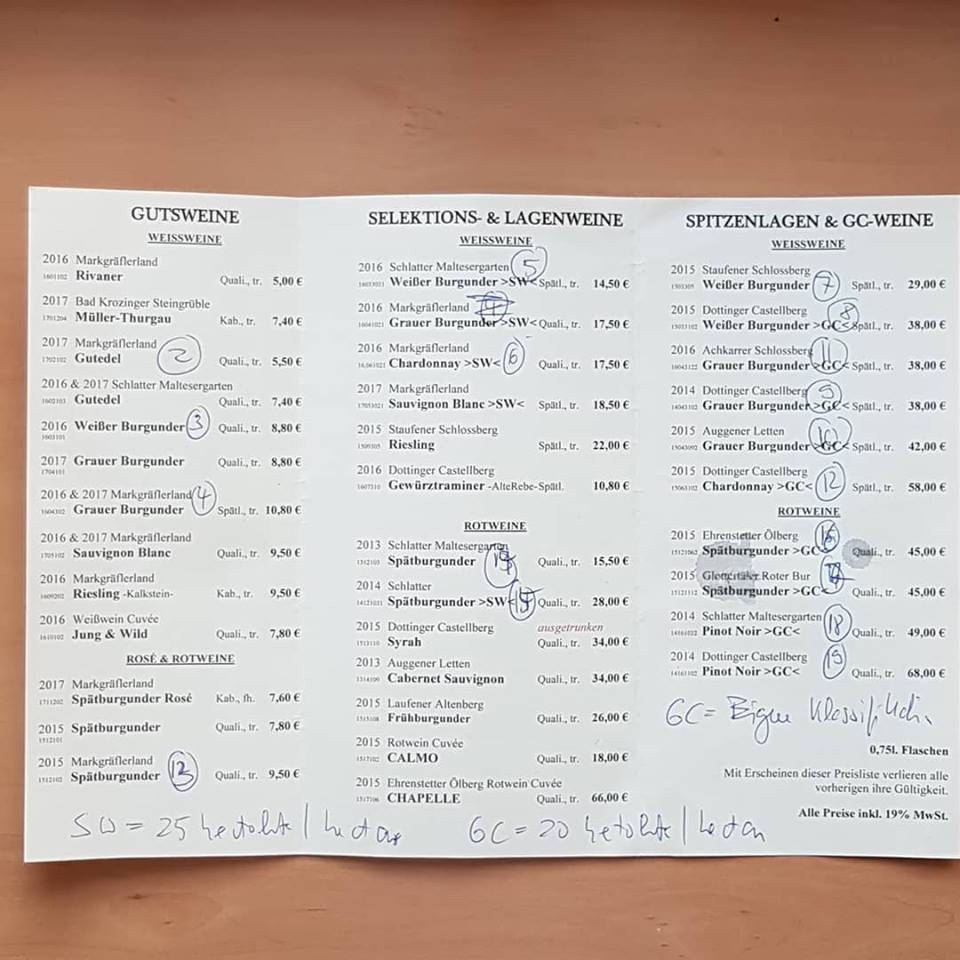 GUTSWEINE
WEISSWEINE
2016 Markgräflerland
1601102 Rivaner Quali., tr. 5,00 €
2017 Bad Krozinger Steingrüble
1701204 Müller-Thurgau Kab., tr. 7,40 €
2017 Markgräflerland
1702102 Gutedel 2 Quali., tr. 5,50 €
2016 & 2017 Schlatter Maltesergarten
1602103 Gutedel Quali., tr. 7,40 €
2016 Weißer Burgunder 3 Quali., tr. 8,80 €
1603101
2017 Grauer Burgunder Quali., tr. 8,80 €
1704101
2016 & 2017 Markgräflerland 4
1604102 Grauer Burgunder Spätl., tr. 10,80 €
2016 & 2017 Markgräflerland
1705102 Sauvignon Blanc Quali., tr. 9,50 €
2016 Markgräflerland
1609202 Riesling -Kalkstein- Kab., tr. 9,50 €
2016 Weißwein Cuvée
1610102 Jung & Wild Quali., tr. 7,80 €
ROSÉ & ROTWEINE
2017 Markgräflerland
1711202 Spätburgunder Rosé Kab., fh. 7,60 €
2015 Spätburgunder Quali., tr. 7,80 €
1512101
2015 Markgräflerland
1512102 Spätburgunder Quali., tr. 9,50 €
SELEKTIONS- & LAGENWEINE
WEISSWEINE
2016 Schlatter Maltesergarten 5
1603103 Weißer Burgunder >SW< Spätl., tr. 14,50 €
2016 Markgräflerland
1604102 Grauer Burgunder >SW< Quali., tr. 17,50 €
2016 Markgräflerland 6
Chardonnay >SW< Quali., tr. 17,50 €
2017 Markgräflerland
Sauvignon Blanc >SW< Spätl., tr. 18,50 €
2015 Staufener Schlossberg
Riesling Spätl., tr. 22,00 €
2016 Dottinger Castellberg
1607310 Gewürztraminer -AlteRebe- Spätl. 10,80 €
ROTWEINE
2013 Schlatter Maltesergarten
1312103 Spätburgunder Quali., tr. 15,50 €
2014 Schlatter
Spätburgunder >SW< Quali., tr. 28,00 €
2015 Dottinger Castellberg ausgetrunken
1513110 Syrah Quali., tr. 34,00 €
2013 Auggener Letten
Cabernet Sauvignon Quali., tr. 34,00 €
2015 Laufener Altenberg
Frühburgunder Quali., tr. 26,00 €
2015 Rotwein Cuvée
1517102 CALMO Quali., tr. 18,00 €
2015 Ehrenstetter Ölberg Rotwein Cuvée
1517106 CHAPELLE Quali., tr. 66,00 €
SPITZENLAGEN & GC-WEINE
WEISSWEINE
2015 Staufener Schlossberg
Weißer Burgunder 7 Spätl., tr. 29,00 €
2015 Dottinger Castellberg 8
1503102 Weißer Burgunder >GC< Spätl., tr. 38,00 €
2016 Achkarrer Schlossberg 11
Grauer Burgunder >GC< Spätl., tr. 38,00 €
2014 Dottinger Castellberg 9
Grauer Burgunder >GC< Spätl., tr. 38,00 €
2015 Auggener Letten 10
Grauer Burgunder >GC< Spätl., tr. 42,00 €
2015 Dottinger Castellberg 12
15063102 Chardonnay >GC< Spätl., tr. 58,00 €
ROTWEINE
2015 Ehrenstetter Ölberg
Spätburgunder >GC< Quali., tr. 45,00 €
2015 Glottertäler Roter Bur
Spätburgunder >GC< Quali., tr. 45,00 €
2014 Schlatter Maltesergarten 18
Pinot Noir >GC< Quali., tr. 49,00 €
2014 Dottinger Castellberg 19
Pinot Noir >GC< Quali., tr. 68,00 €
GC =
0,75l. Flaschen
Mit Erscheinen dieser Preisliste verlieren alle
vorherigen ihre Gültigkeit.
Alle Preise inkl. 19% MwSt.
SW = 25 hectolite / hectar GC = 20 hectolite / hectar